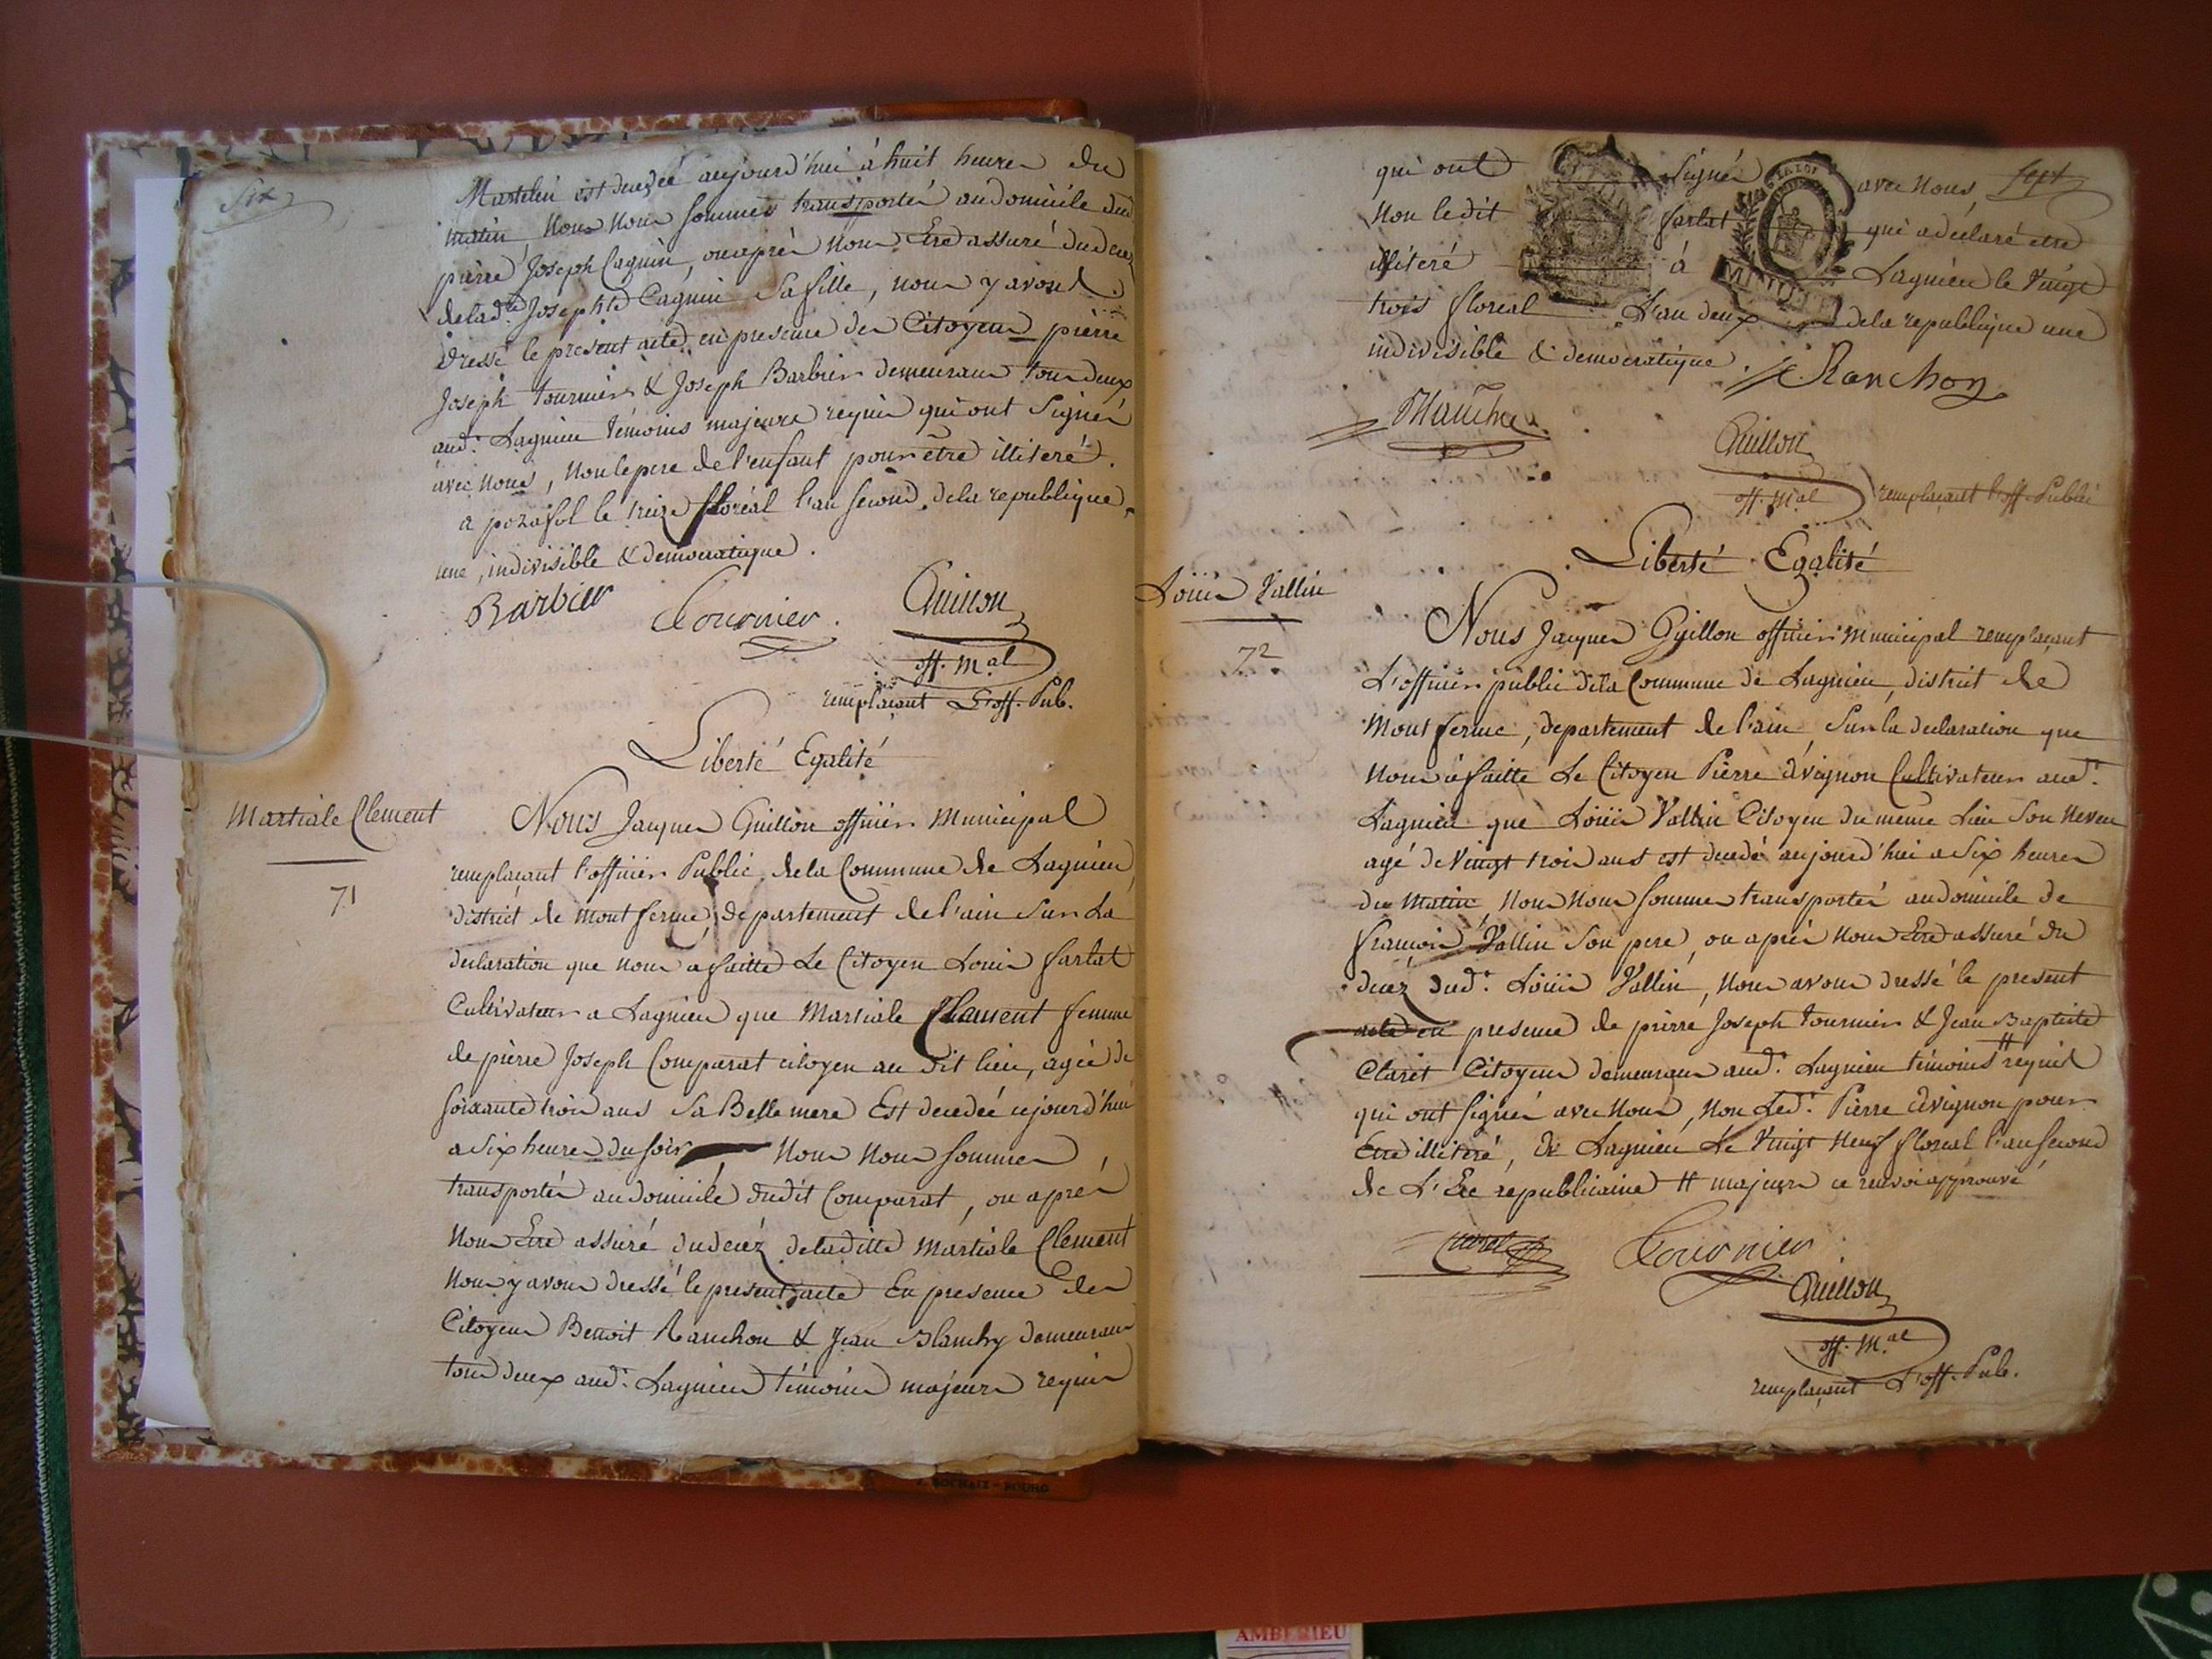 Six
Martelin est decedée aujourd'hui à huit heures du
matin, Nous Nous sommes transportés au domicile dud
pierre Joseph Cagnin, ou après Nous Etre assuré du decez
de lad.te Josephte Cagnin Sa fille, nous y avons
dressé le present acte en presence des Citoyens pierre
Joseph tournier & Joseph Barbier demeurans tous deux
aud.t Lagnieu témoins majeurs requis qui ont Signés
avec Nous, Non le pere de l'enfant pour être illiteré.
a posafol le treize floréal l'an second de la republique
une, indivisible & democratique.
Barbier Tournier. Guillon
off. M.al
remplaçant L'off. Pub.
Liberté Egalité
Martiale Clement
71
Nous Jacques Guillon officier Municipal
remplaçant l'officier Public de la Commune de Lagnieu,
district de Montferme, departement de l'ain Sur La
declaration que nous a faitte Le Citoyen Louis sarlat
Cultivateur a Lagnieu que Martiale Clement femme
de pierre Joseph Comparat citoyen au dit lieu, agée de
soixante trois ans Sa Belle mere Est decedée ajourd'hui
a Six heures du soir Nous Nous sommes
transportés au domicile dudit Comparat, ou après
Nous Etre assuré du decéz de laditte Martiale Clement
Nous y avons dressé le present acte En presence des
Citoyens Benoit Ranchon & Jean Blanchy demeurans
tous deux aud.t Lagnieu témoins majeurs requis
qui ont Signés avec Nous, sept
Non ledit sarlat qui a déclaré etre
illiteré à Lagnieu le Vingt
trois floreal L'an deux de la republique une
indivisible & democratique.
Ranchon
Guillon
off. M.al remplaçant l'off. Public
Liberté Egalité
Loüis Vallin
72
Nous Jacques Guillon officier Municipal remplaçant
L'officier public de la Commune de Lagnieu, district de
Montferme, departement de l'ain, Sur la declaration que
Nous a faitte Le Citoyen Pierre avignon Cultivateur aud.t
Lagnieu que Loüis Vallin Citoyen du même Lieu Son Neveu
agé de Vingt trois ans est decedé aujourd'hui a Six heures
du Matin, Nous Nous sommes transportés au domicile de
françois Vallin Son pere, ou après Nous Etre assuré du
decez dud.t Loüis Vallin, Nous avons dressé le present
acte en presence de pierre Joseph tournier & Jean Baptiste
Claret Citoyens demeurans aud.t Lagnieu témoins # requis
qui ont signés avec Nous, Non Led.t Pierre avignon pour
Etre illiteré, de Lagnieu Le Vingt Neuf floreal l'an second
de L'Ere republicaine # majeurs ce renvoi approuvé
Claret Tournier
Guillon
off. M.al
remplaçant L'off. Pub.
AMBERIEU